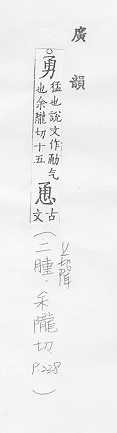 廣韻
○勇猛也說文作勈气
也余隴切十五恿古
文
(二腫.余隴切
P.238)
上聲